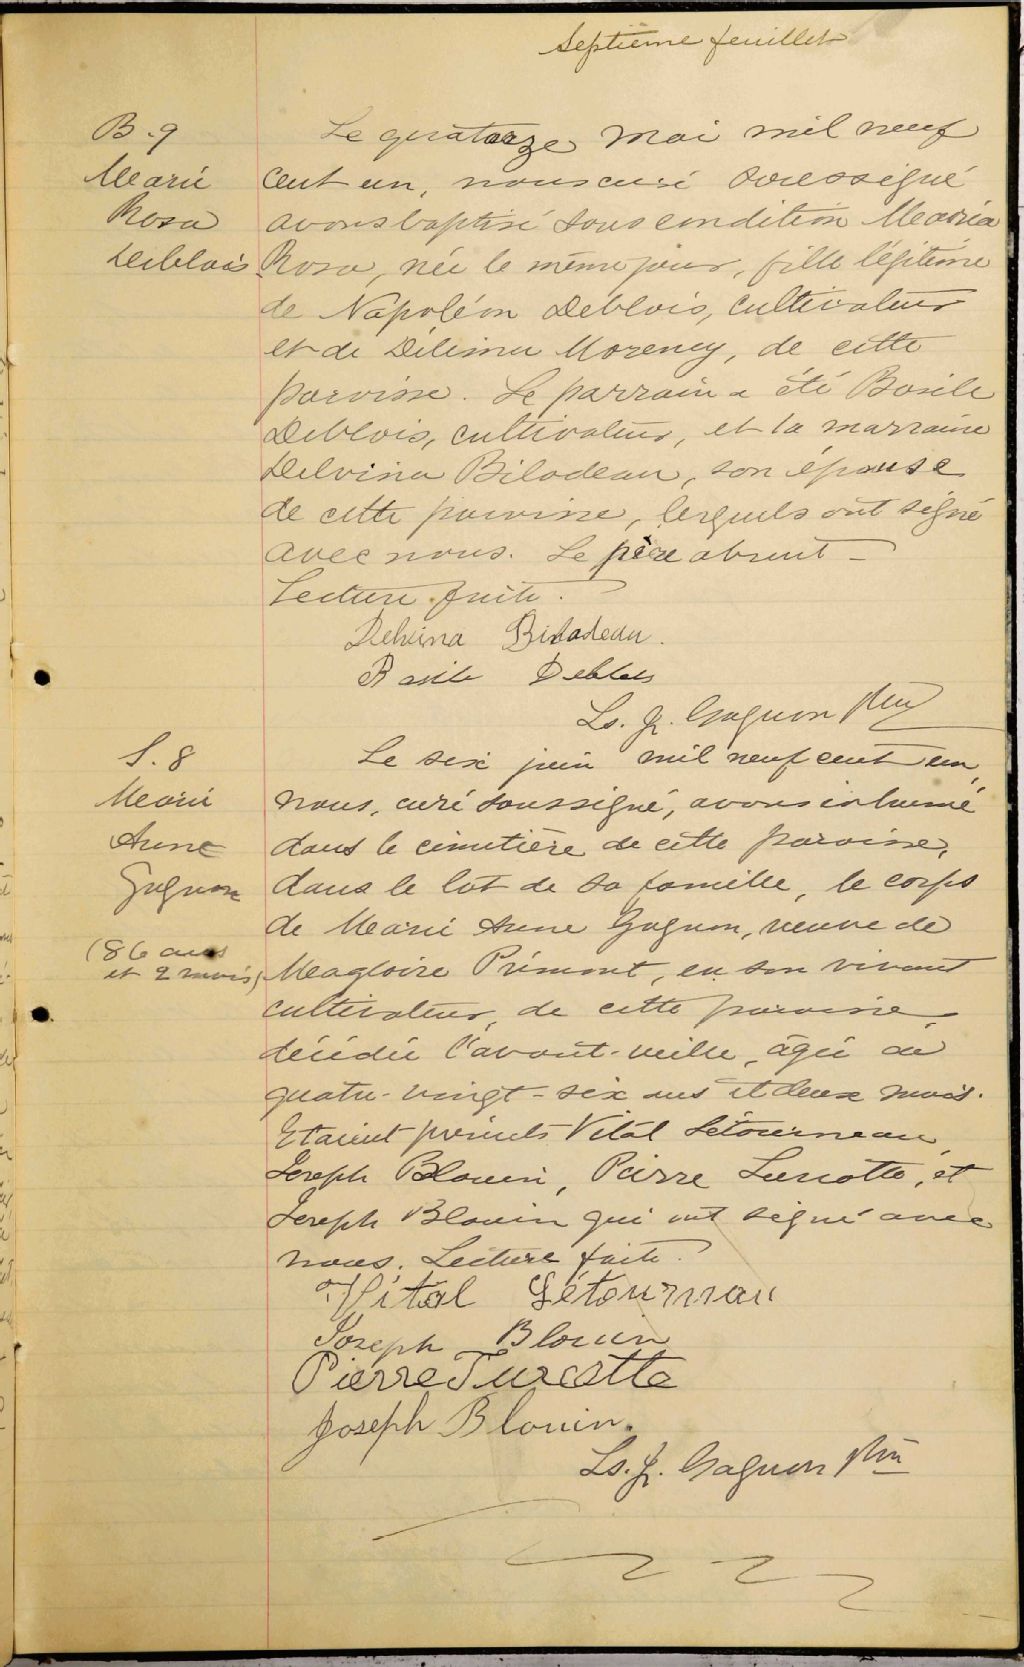 Septième feuillet
B. 9
Marie
Rosa
Deblois
Le quatorze mai mil neuf
cent un, nous curé soussigné
avons baptisé sous condition Maria
Rosa, née le même jour, fille légitime
de Napoléon Deblois, cultivateur
et de Délima Morency, de cette
paroisse. Le parrain a été Basile
Deblois, cultivateur, et la marraine
Delvina Bilodeau, son épouse
de cette paroisse, lesquels ont signé
avec nous. Le père absent -
Lecture faite.
Delvina Bilodeau.
Basile Deblois
Ls. J. Gagnon Ptre
S. 8
Marie
Anne
Gagnon
(86 ans
et 2 mois)
Le six juin mil neuf cent un,
nous, curé soussigné, avons inhumé
dans le cimetière de cette paroisse,
dans le lot de sa famille, le corps
de Marie Anne Gagnon, veuve de
Magloire Prémont, en son vivant
cultivateur, de cette paroisse,
décédée l'avant-veille, âgée de
quatre-vingt-six ans et deux mois.
Etaient présents Vital Létourneau,
Joseph Blouin, Pierre Turcotte, et
Joseph Blouin qui ont signé avec
nous. Lecture faite.
Vital Létourneau
Joseph Blouin
Pierre Turcotte
Joseph Blouin.
Ls. J. Gagnon Ptre